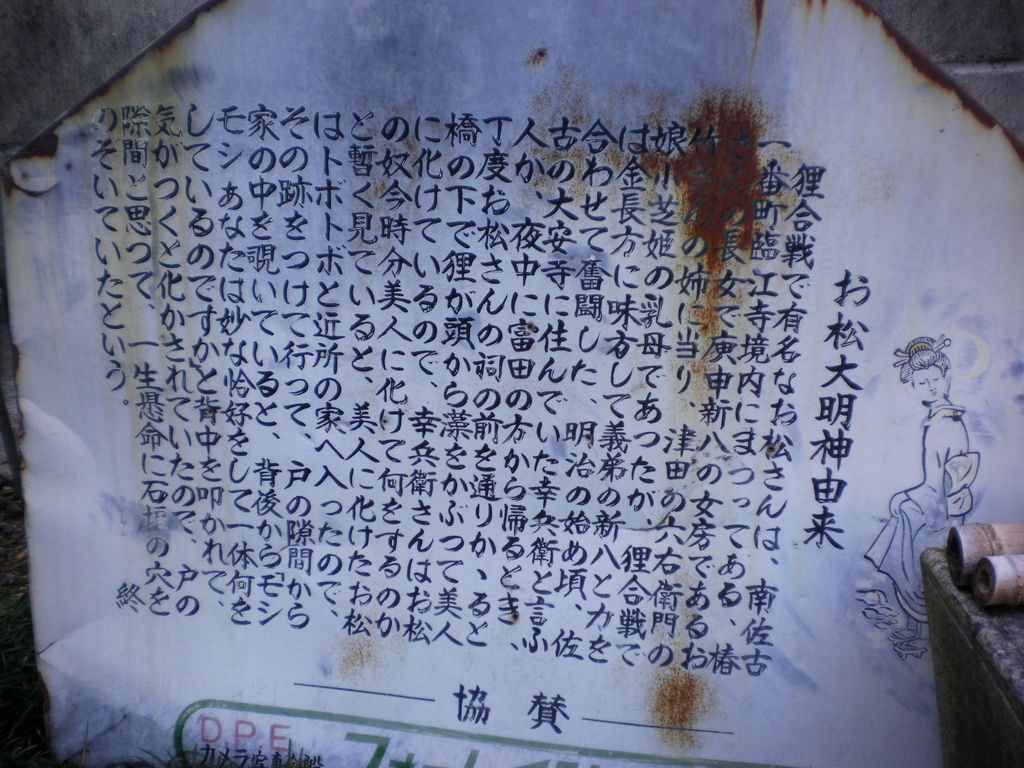 お松大明神由来
狸合戦で有名なお松さんは、南佐古
一番町臨江寺境内にまつってある、椿
さんの長女で庚申新八の女房であるお
竹さんの姉に当り、津田の六右衛門の
娘小芝姫の乳母であつたが、狸合戦で
は金長方に味方して義弟の新八と力を
合わせて奮闘した、明治の始め頃、佐
古の大安寺に住んでいた幸兵衛と言ふ
人が、夜中に富田の方から帰るとき、
丁度お松さんの祠の前を通りかゝると
橋の下で狸が頭から藻をかぶつて美人
に化けているので、幸兵衛さんはお松
の奴今時分美人に化けて何をするのか
と暫く見ていると、美人に化けたお松
はトボトボと近所の家へ入ったので、
その跡をつけて行って、戸の隙間から
家の中を覗いていると、背後からモシ
モシあなたは妙な恰好をして一体何を
しているのですか」と背中を叩かれて、
気がつくと化かされていたので、戸の
隙間と思つて、一生懸命に石垣の穴を
のぞいていたという。
終
協賛
DPE
カメラ写真